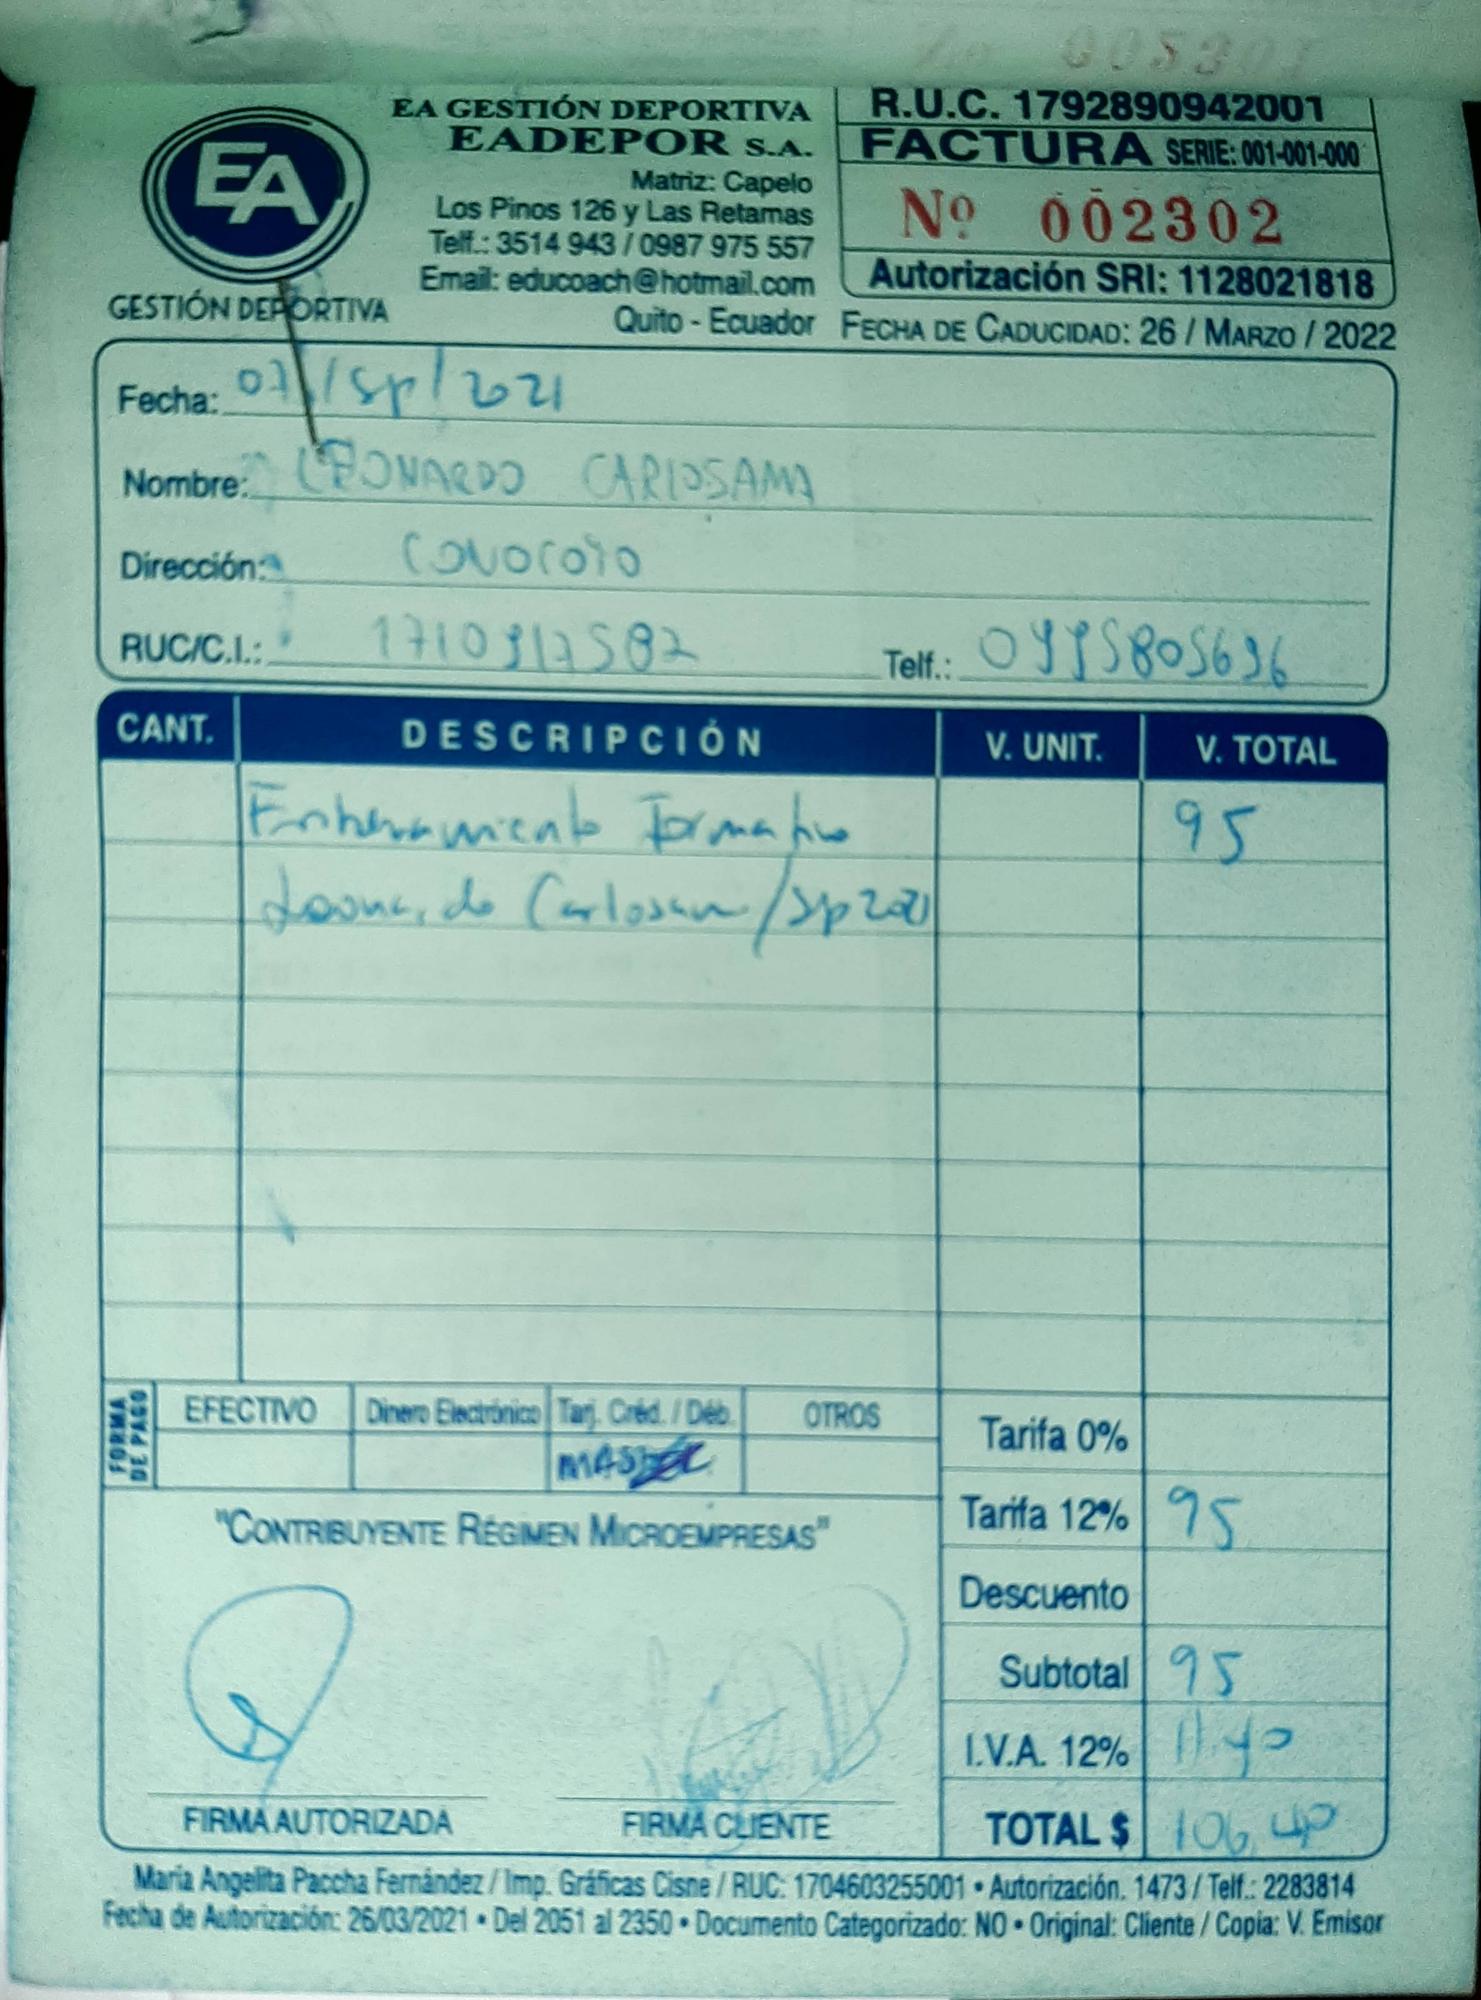 EA GESTIÓN DEPORTIVA
EADEPOR S.A.
Matriz: Capelo
Los Pinos 126 y Las Retamas
Telf.: 3514 943 / 0987 975 557
Email: educoach@hotmail.com
Quito - Ecuador
EA
GESTIÓN DEPORTIVA
R.U.C. 1792890942001
FACTURA SERIE: 001-001-000
Nº 002302
Autorización SRI: 1128021818
FECHA DE CADUCIDAD: 26 / MARZO / 2022
Fecha: 07/sp/2021
Nombre: LEONARDO CARLOSAMA
Dirección: CONOCOTO
RUC/C.I.: 1710917587 Telf.: 0995805696
CANT. DESCRIPCIÓN V. UNIT. V. TOTAL
Entrenamiento Formativo 95
Leonardo Carlosama/sp 2021
FORMA DE PAGO
EFECTIVO Dinero Electrónico Tarj. Créd. / Déb. OTROS
Tarifa 0%
Tarifa 12% 95
"CONTRIBUYENTE RÉGIMEN MICROEMPRESAS"
Descuento
Subtotal 95
I.V.A. 12% 11.40
TOTAL $ 106,40
FIRMA AUTORIZADA FIRMA CLIENTE
María Angelita Paccha Fernández / Imp. Gráficas Cisne / RUC: 1704603255001 • Autorización. 1473 / Telf.: 2283814
Fecha de Autorización: 26/03/2021 • Del 2051 al 2350 • Documento Categorizado: NO • Original: Cliente / Copia: V. Emisor